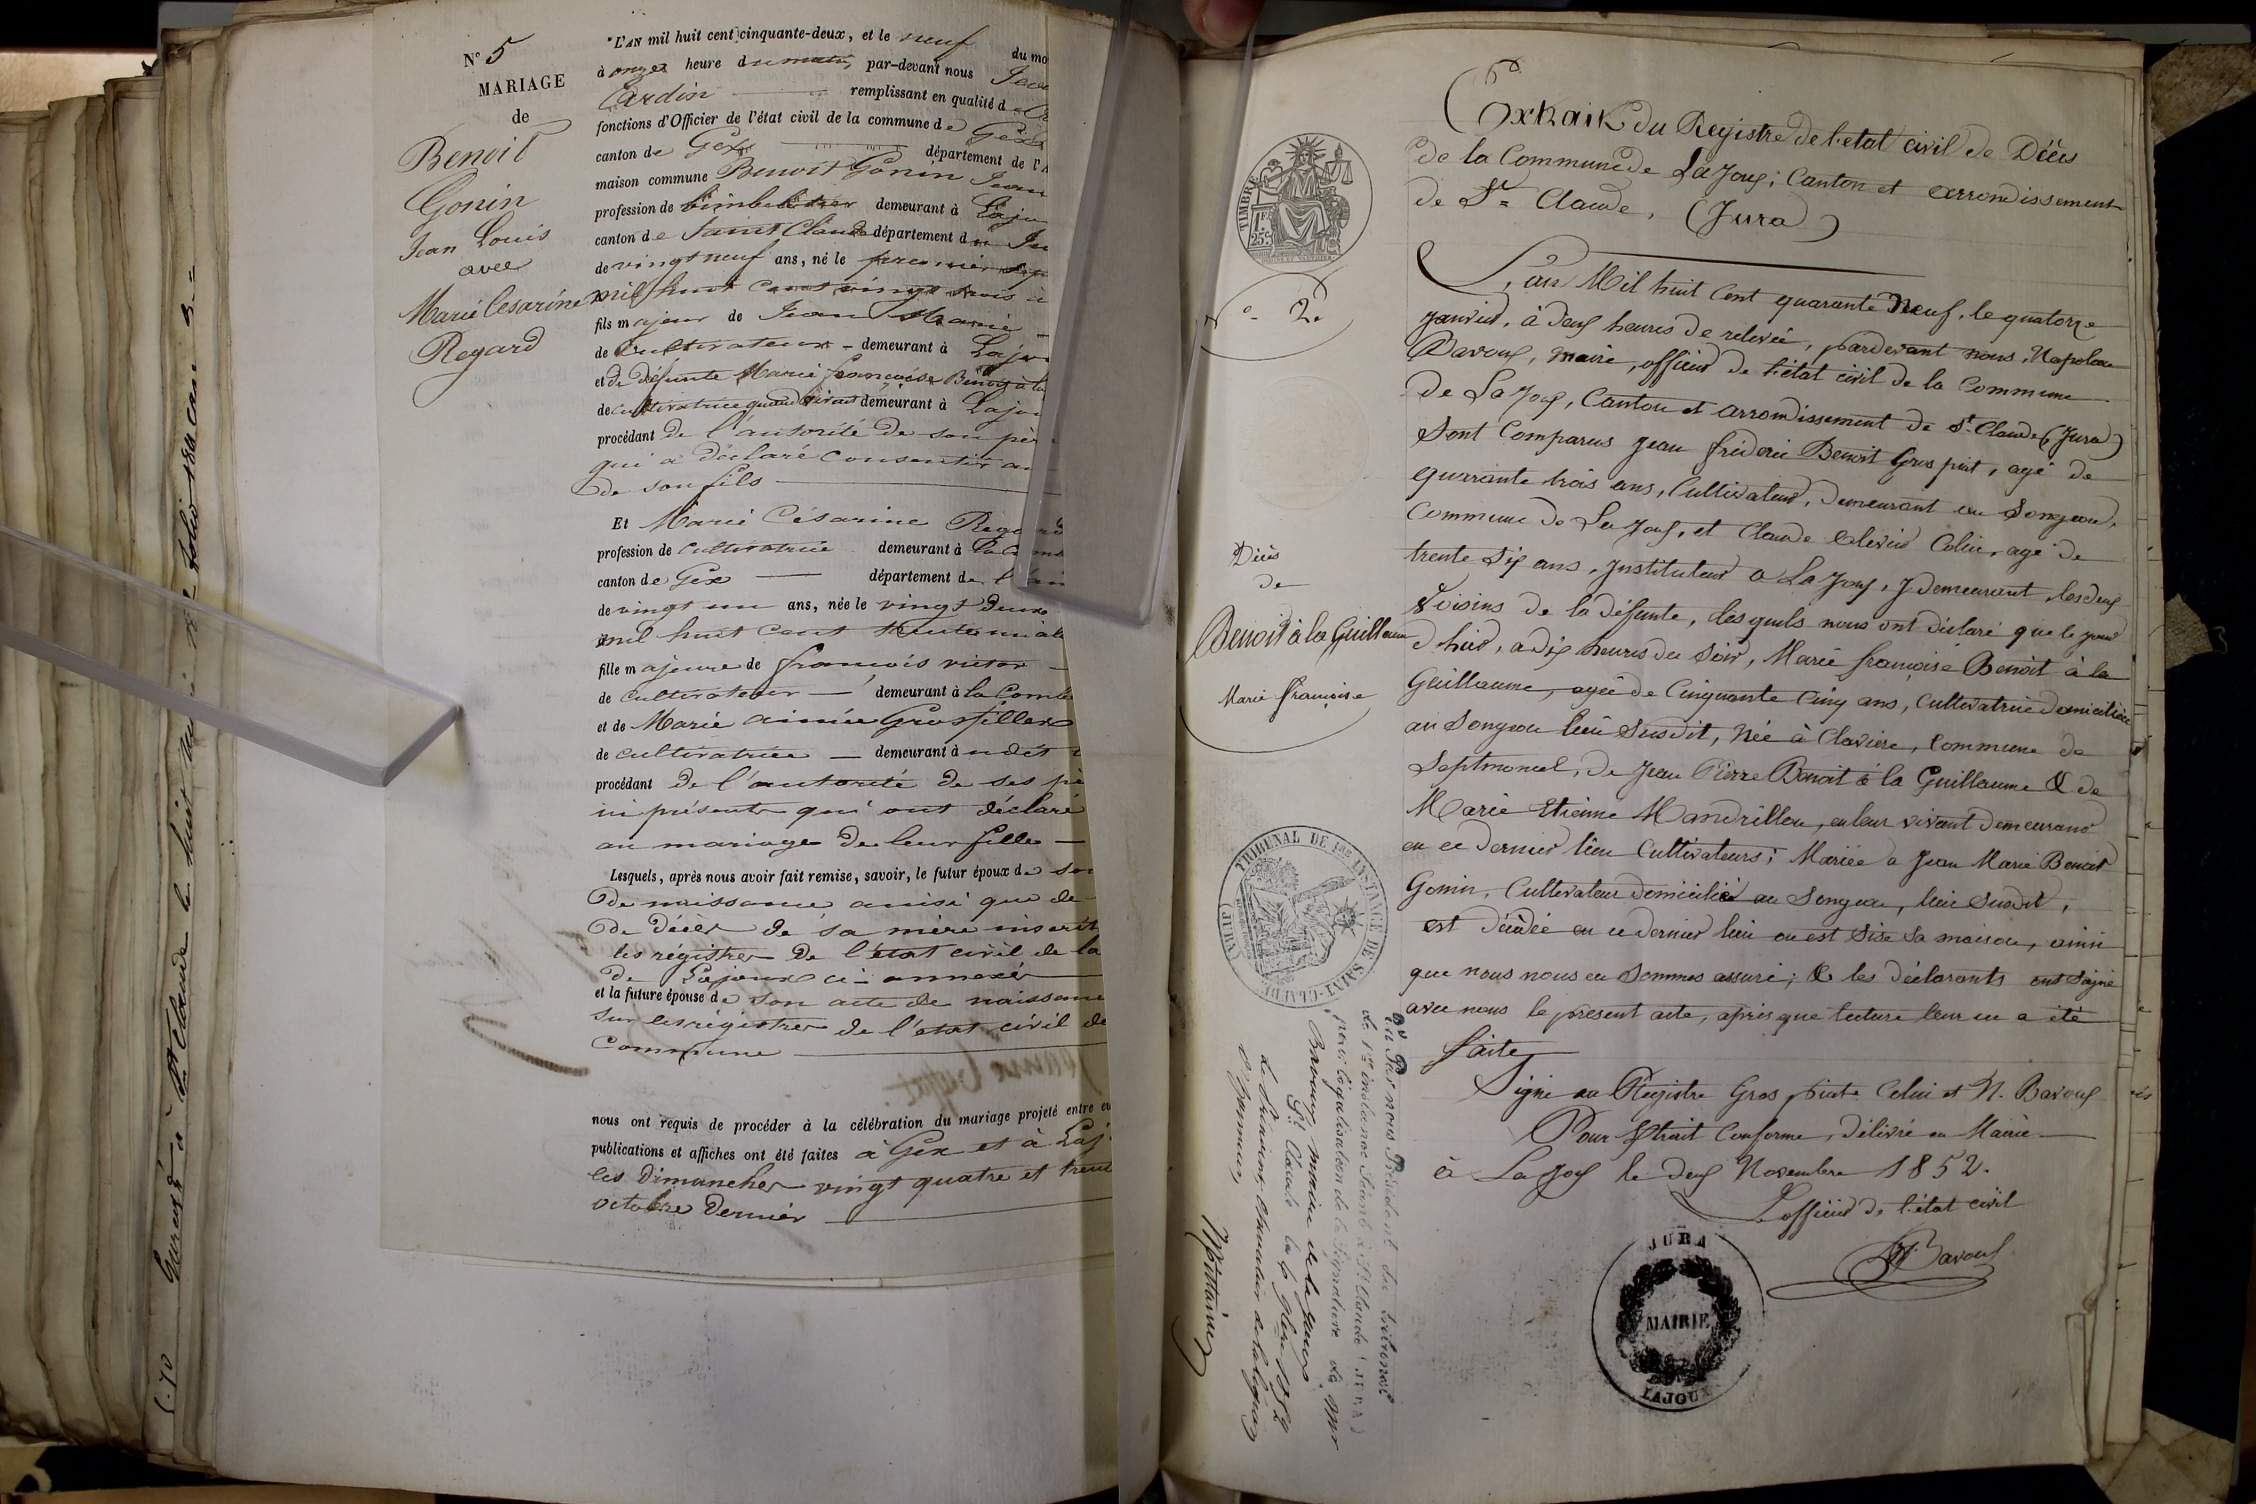 N° 5
MARIAGE
de
Benoit
Gonin
Jean Louis
avec
Marie Césarine
Regard
L'AN mil huit cent cinquante-deux, et le neuf du mo
à onze heure du matin, par-devant nous
Cardin remplissant en qualité d
fonctions d'Officier de l'état civil de la commune de Gex
canton de Gex département de l'
maison commune Benoit Gonin Jean
profession de demeurant à Laju
canton de Saint Claude département du Ju
de vingt neuf ans, né le premier
mil huit cent vingt trois à
fils majeur de Jean Marie
de cultivateur demeurant à Lajo
et de défunte Marie françoise Benoit à la
de cultivatrice quand vivait demeurant à Lajou
procédant de l'autorité de son pèr
qui a déclaré consentir au
de son fils
Et Marie Césarine Regard
profession de cultivatrice demeurant à La Comb
canton de Gex département de l'ain
de vingt un ans, née le vingt deux
mil huit cent trente un à la
fille majeure de françois victor
de cultivateur demeurant à la Combe
et de Marie aimée Grosfillex
de cultivatrice demeurant à
procédant de l'autorité de ses pè
ici présents qui ont déclaré
au mariage de leur fille
Lesquels, après nous avoir fait remise, savoir, le futur époux de son
de naissance ainsi que de
de décès de sa mère inscrit
les régistres de l'état civil de la
de Lajoux ci-annexés
et la future épouse de son acte de naissance
sur les régistres de l'état civil de
Commune
nous ont requis de procéder à la célébration du mariage projeté entre eu
publications et affiches ont été faites à Gex et à Laj
les dimanches vingt quatre et trent
octobre dernier
Extrait du Registre de l'etat civil de Décès
de la Commune de La Joux, Canton et arrondissement
de St Claude, (Jura)
TIMBRE
1 F. 25 c.
2.
L'an Mil huit Cent quarante Neuf, le quatorze
janvier, à deux heures de relevée, pardevant nous, Napoléon
Bavoux, maire, officier de l'état civil de la Commune
de La Joux, Canton et arrondissement de St Claude (Jura)
Sont Comparus Jean frédéric Benoit Gros piat, agé de
quarante trois ans, Cultivateur, demeurant au Songeon,
Commune de La Joux, et Claude Colin, agé de
trente Six ans, Instituteur à La Joux, y demeurant, les deux
Voisins de la défunte, lesquels nous ont déclaré que le jour
d'hier, à dix heures du Soir, Marie françoise Benoit à la
Guillaume, agée de Cinquante Cinq ans, Cultivatrice domiciliée
au Songeon lieu Susdit, Née à Claviere, Commune de
Septmoncel, de Jean Pierre Benoit à la Guillaume & de
Marie Etienne Mandrillon, en leur vivant demeurant
en ce dernier lieu Cultivateurs; Mariée à Jean Marie Benoit
Gonin, Cultivateur domicilié au Songeon, lieu Susdit,
est décédée en ce dernier lieu ou est Sise Sa maison, ainsi
que nous nous en Sommes assuré; & les déclarants ont Signé
avec nous le présent acte, après que lecture leur en a été
faite
Signé au Registre Gros piat, Colin et N. Bavoux
Pour Extrait Conforme, délivré en Mairie
à La Joux le deux Novembre 1852.
L'officier de l'état civil
N Bavoux
Décès
de
Benoit à la Guillaume
Marie françoise
TRIBUNAL DE 1re INSTANCE DE SAINT-CLAUDE (JURA)
Vu Par nous Président du tribunal
de 1re instance Séant à St Claude (JURA)
pour légalisation de la Signature de Mr
Bavoux maire de la Joux
St Claude le 4 9bre 1852
le Président, Chevalier de la légion
d'honneur
JURA
MAIRIE
LAJOUX